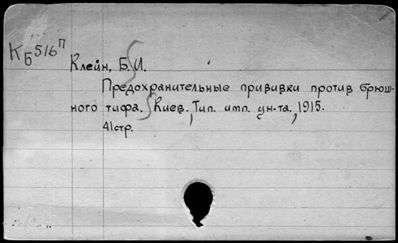 КБ516П
Клейн, Б. И.
Предохранительные прививки против брюш-
ного тифа. Киев, Тип. имп. ун-та, 1915.
41стр.